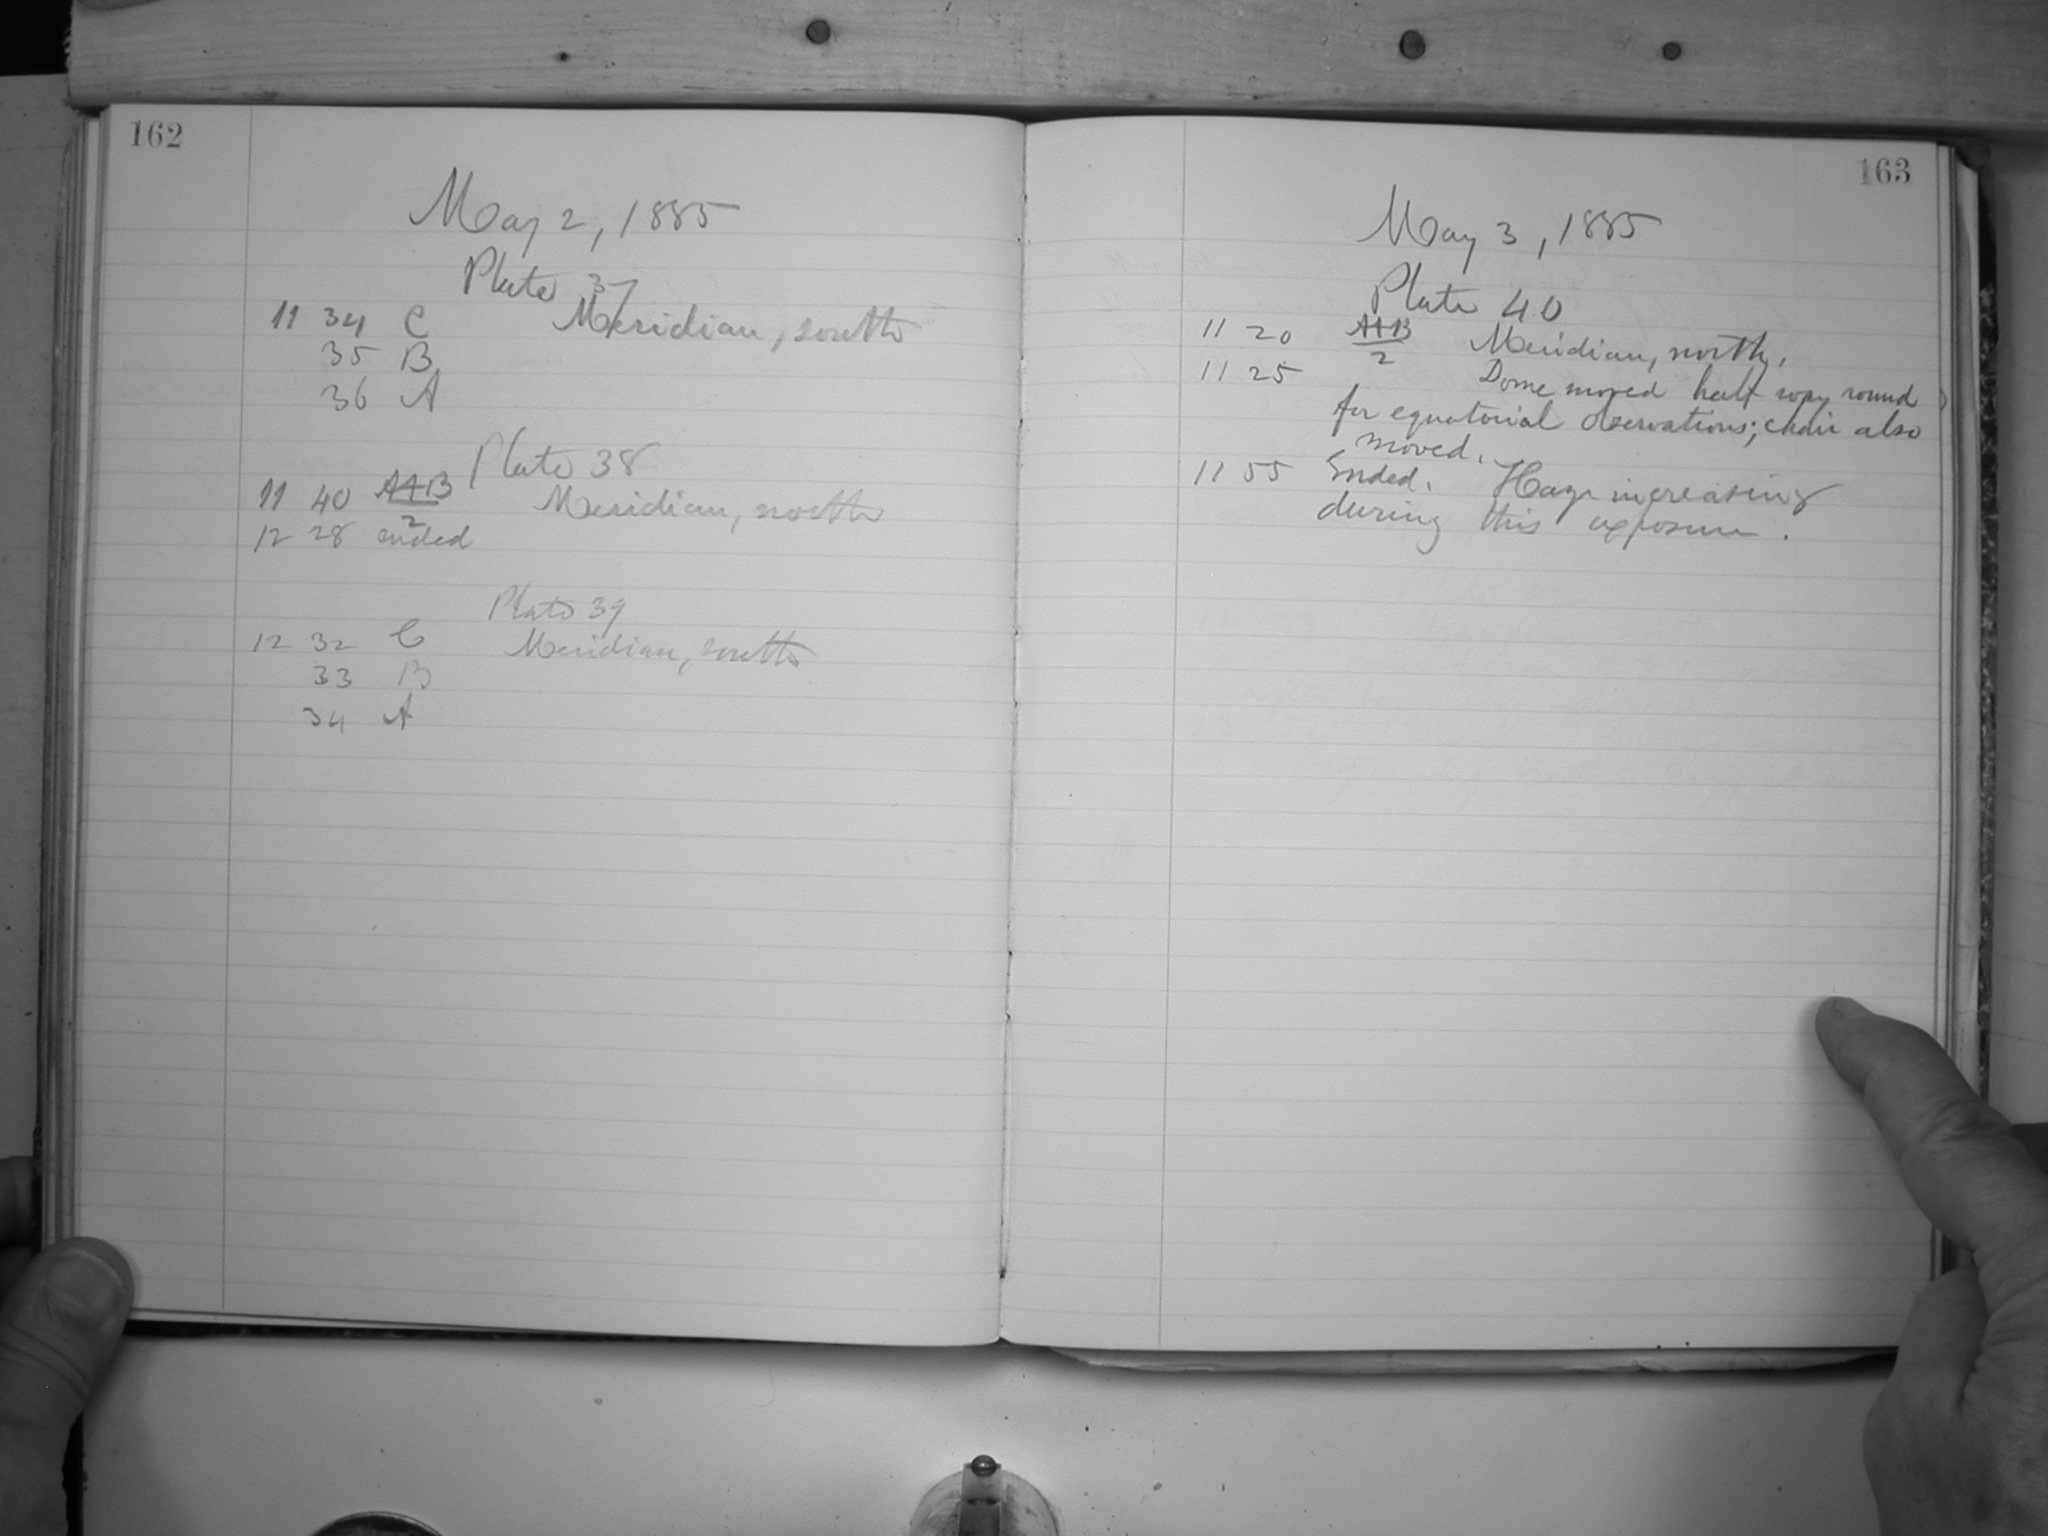 162
May 2, 1885
Plate 37
11 34 C Meridian, south
35 B
36 A
Plate 38
11 40 A+B/2 Meridian, north
12 28 ended
Plate 39
12 32 C Meridian, south
33 B
34 A
163
May 3, 1885
Plate 40
11 20 A+B/2 Meridian, north.
11 25 Dome moved half way round
for equatorial observations; chair also
moved.
11 55 Ended. Haze increasing
during this exposure.